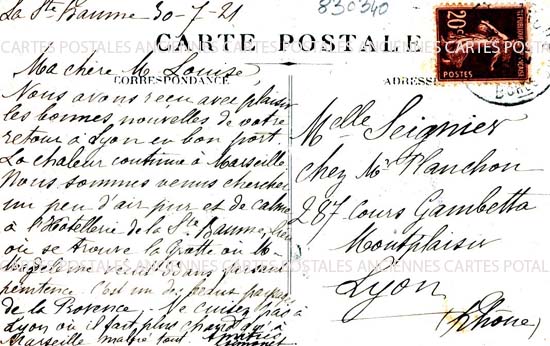 La Ste Baume 30-7-21
830340
CARTE POSTALE
CORRESPONDANCE
ADRESSE
20c
POSTES
Ma chère M. Louise
Nous avons reçu avec plaisir
les bonnes nouvelles de votre
retour à Lyon en bon port.
La chaleur continue à Marseille
Nous sommes venus chercher
un peu d'air pur et de calme
à l'Hotellerie de la Ste Baume, lieu
où se trouve la Grotte où M.
pénitence. C'est un de
de la Provence. Ne
Lyon où il fait plus chaud qu'à
Marseille malgré tout.
Melle Seignier
chez Mr Planchon
287 Cours Gambetta
Montplaisir
Lyon
(Rhône)
ANCIENNES CARTES POSTALES ANCIENNES CARTES POSTALES
CARTES POSTALES ANCIENNES CARTES POTAL